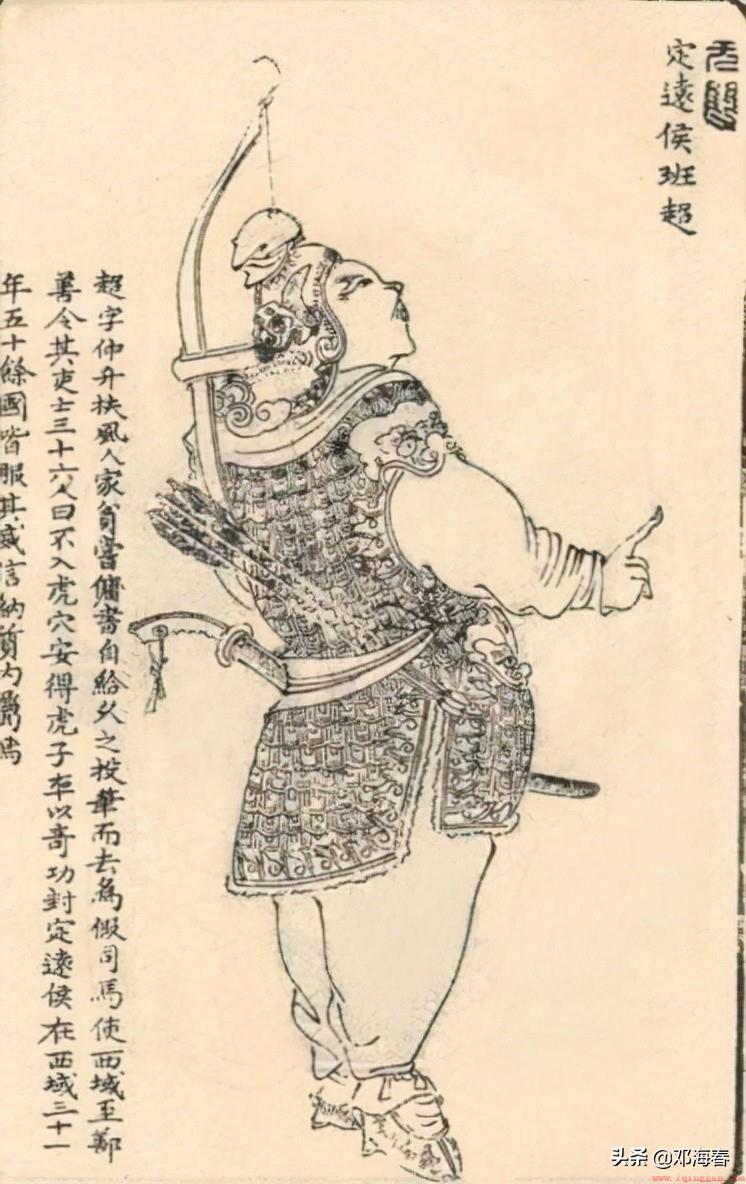 定遠侯班超
超字仲升扶風人家貧嘗傭書自給久之投筆而去為假司馬使西域至鄯
善令其吏士三十六人曰不入虎穴安得虎子卒以奇功封定遠侯在西域三十一
年五十餘國皆服其威信納質內屬焉
头条 @邓海春